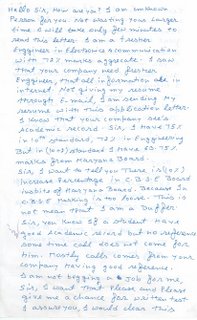 Hello Sir, How are you! I am unknown
Person for you. Not wasting your larger
time. I will take only few minutes to
send this letter. I am a fresher
Engineer in Electronics & communication
with 72% marks aggregate. I saw
that your company need fresher
Engineer, that all information are in
internet. Not giving my resume
through E-mail, I am sending my
resume with this application letter.
I know that your company see's
Academic record. Sir, I have 75%
in 10th standard, 72% in Engineering
But in (10+2) standard I have 60.7%
marks from Haryana Board.
Sir, I want to tell you There is
Increase Percentage in C.B.S.E Board
of Haryana Board. Because In
C.B.S.E marking is too loose. This is
not mean that I am a Duffer
Sir, you know if a student have
good Academic record but no reference
some time call does not come for
him. Mostly calls comes from your
company having good reference.
I am not begging a Job for me,
Sir, I want that Please only Please
give me a chance for written test
I assure you, I would clear this